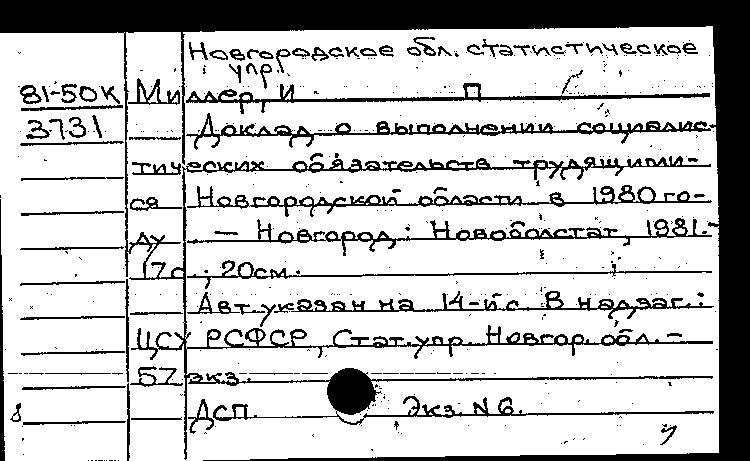 Новгородское обл. статистическое
упр.
81-50К Миллер, И П
3731 Доклад о выполнении социалис-
тических обязательств трудящими-
ся Новгородской области в 1980 го-
ду. — Новгород: Новоблстат, 1981.-
17с.; 20см.
Авт. указан на 14-й с. В надзаг.:
ЦСУ РСФСР, Стат. упр. Новгор. обл. -
57 экз.
ДСП. Экз. N 6.